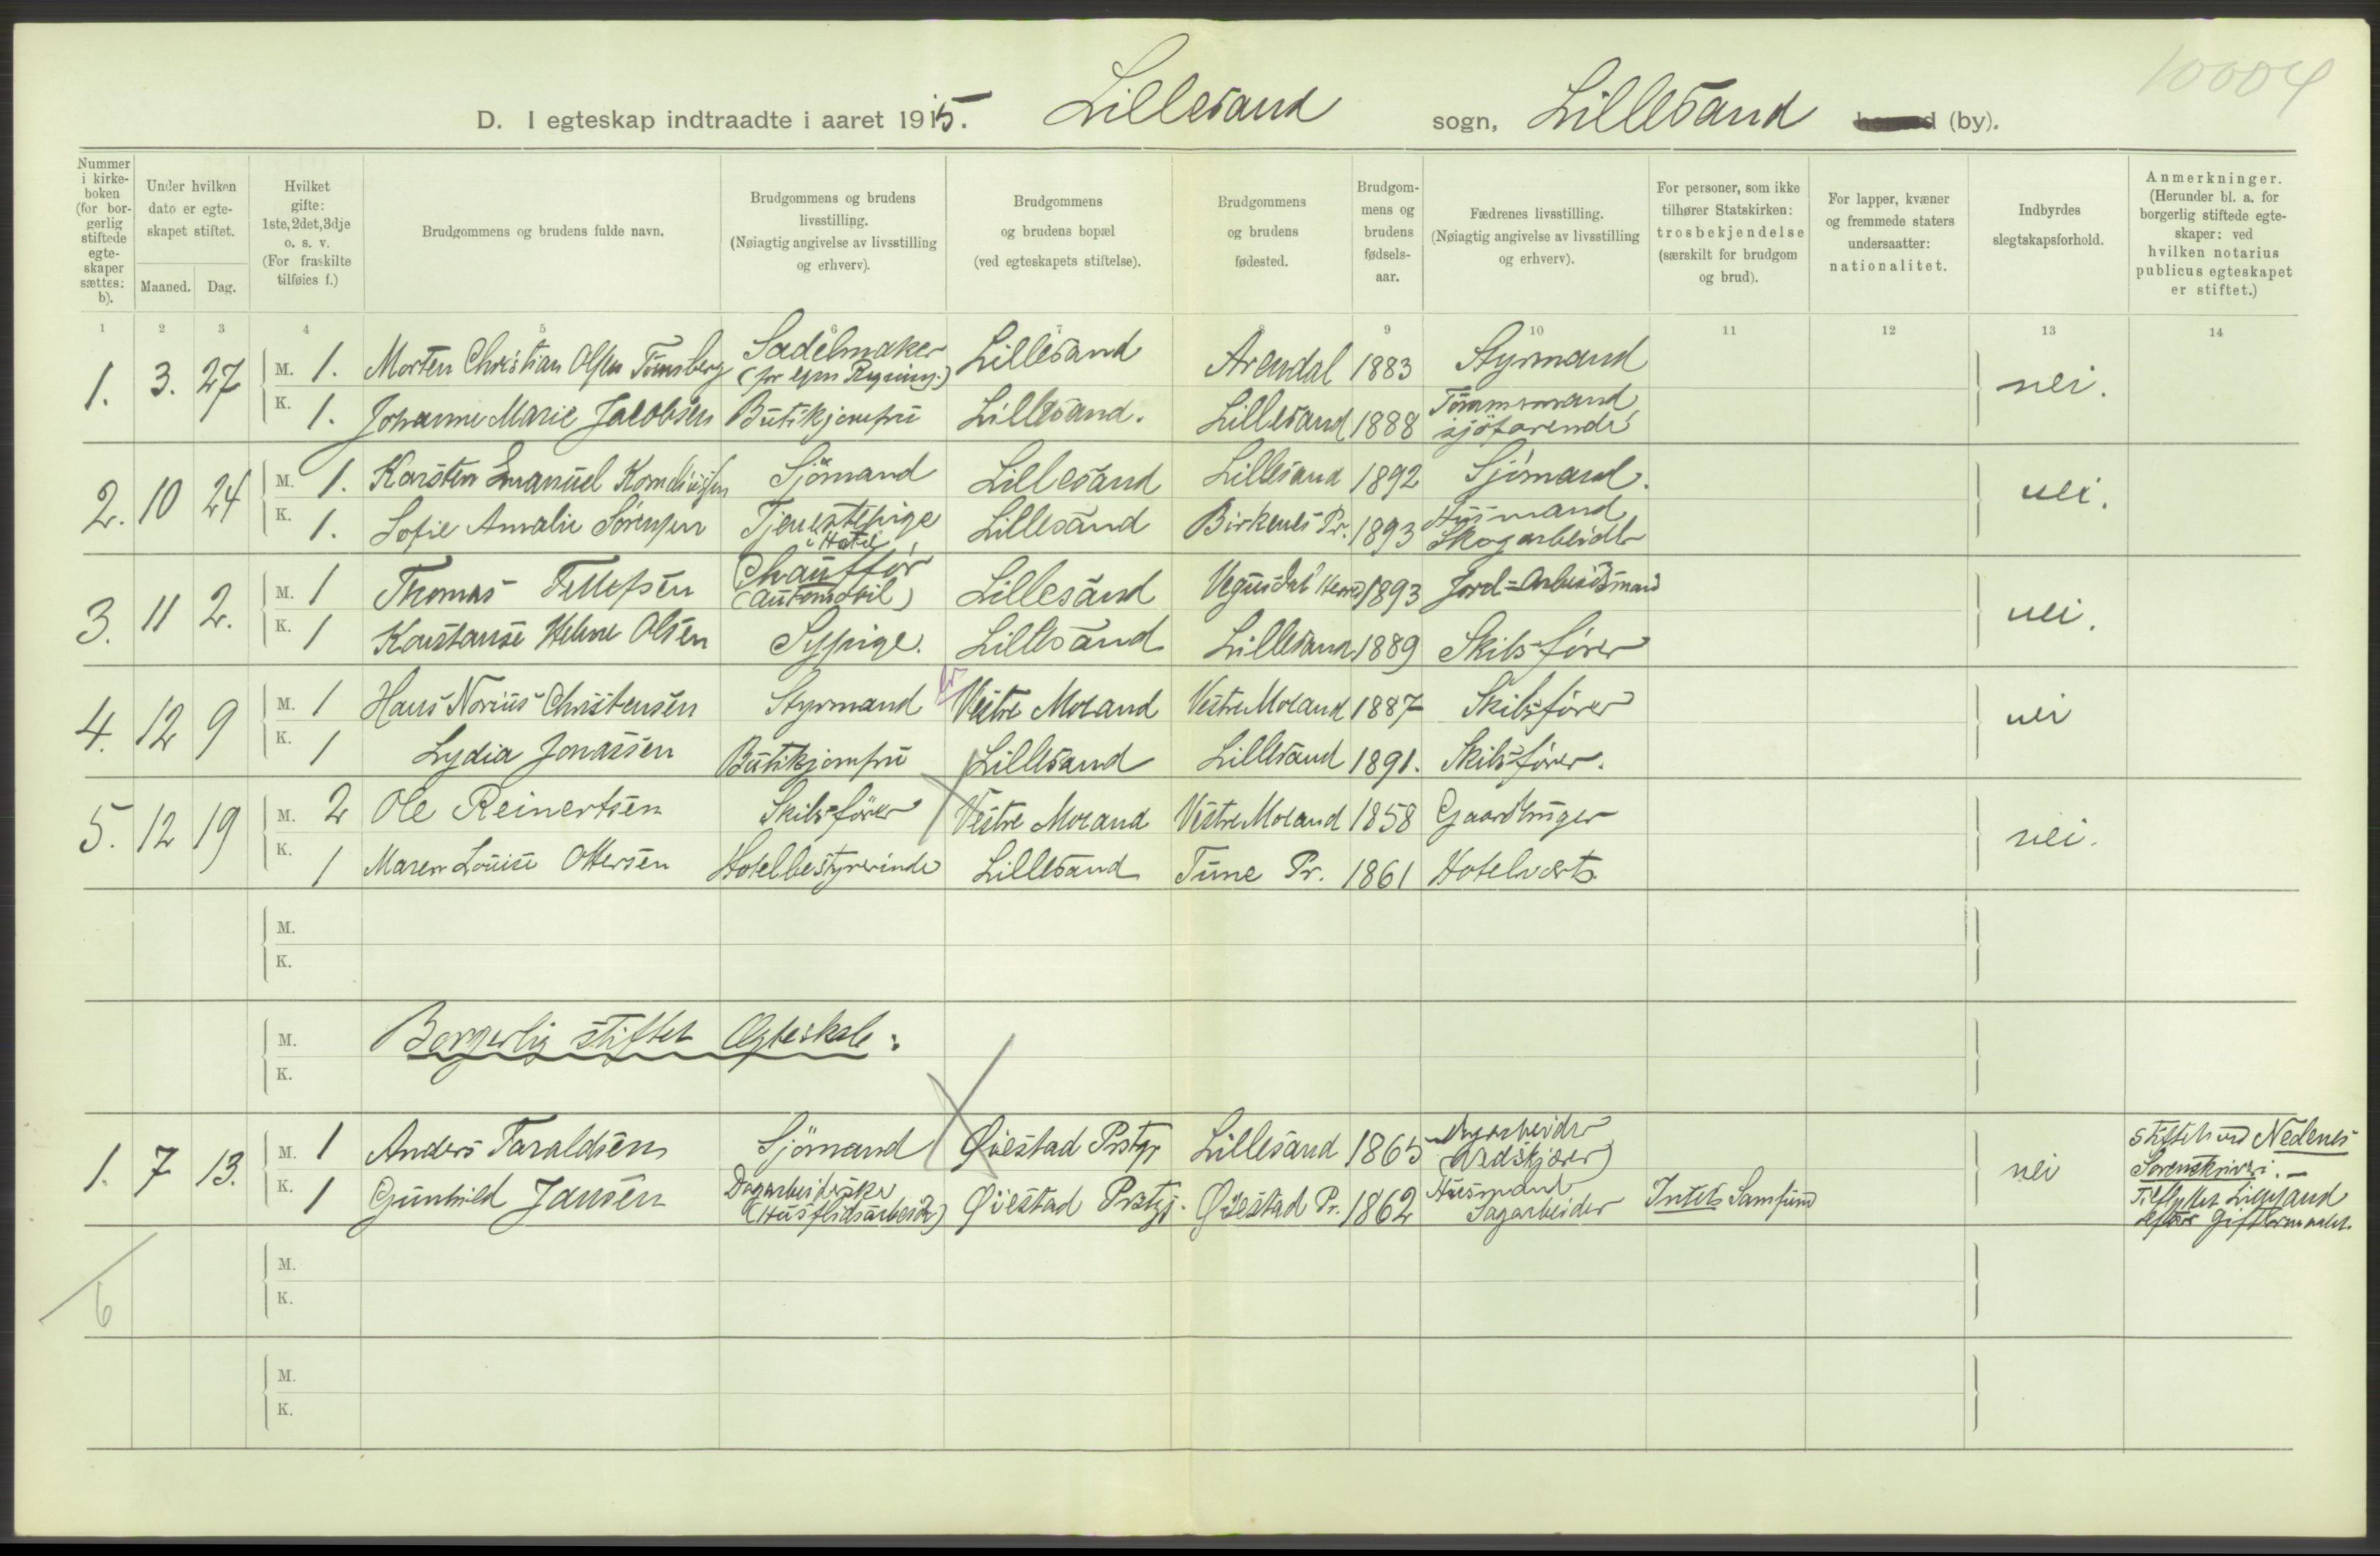 10004
D. I egteskap indtraadte i aaret 1915. Lillesand sogn, Lillesand herred (by).
Nummer i kirke-boken (for bor-gerlig stiftede egte-skaper sættes: b).
Under hvilken dato er egte-skapet stiftet.
Maaned. Dag.
Hvilket gifte: 1ste, 2det, 3dje o. s. v. (For fraskilte tilføies f.)
Brudgommens og brudens fulde navn.
Brudgommens og brudens livsstilling. (Nøiagtig angivelse av livsstilling og erhverv).
Brudgommens og brudens bopæl (ved egteskapets stiftelse).
Brudgommens og brudens fødested.
Brudgom-mens og brudens fødsels-aar.
Fædrenes livsstilling. (Nøiagtig angivelse av livsstilling og erhverv).
For personer, som ikke tilhører Statskirken: trosbekjendelse (særskilt for brudgom og brud).
For lapper, kvæner og fremmede staters undersaatter: nationalitet.
Indbyrdes slegtskapsforhold.
Anmerkninger. (Herunder bl. a. for borgerlig stiftede egte-skaper: ved hvilken notarius publicus egteskapet er stiftet.)
1 2 3 4 5 6 7 8 9 10 11 12 13 14
1. 3. 27 M. 1. Morten Christian Olsen Tønsberg Sadelmaker (for egen Regning.) Lillesand Arendal 1883 Styrmand nei.
K. 1. Johanne Marie Jacobsen Butikjomfru Lillesand. Lillesand 1888 Tømmermand sjöfarende
2. 10 24 M. 1. Karsten Emanuel Sjömand Lillesand Lillesand 1892 Sjömand. nei.
K. 1. Sofie Amalie Sørensen Tjenestepige i Hotel Lillesand Birkenes Pr. 1893 Husmand Skogarbeider
3. 11 2. M. 1 Thomas Tellefsen Chauffør (automobil) Lillesand Vegusdal Herred 1893 Jord-Arbeidsmand nei.
K. 1 Konstanse Helene Olsen Sypige. Lillesand Lillesand 1889 Skibsfører
4. 12 9 M. 1 Hans Norius Christensen Styrmand Vestre Moland Vestre Moland 1887 Skibsfører nei
K. 1 Lydia Jonassen Butikjomfru Lillesand Lillesand 1891. Skibsfører.
5. 12 19 M. 2 Ole Reinertsen Skibsfører Vestre Moland Vestre Moland 1858 Gaardbruger nei.
K. 1 Maren Louise Ottersen Hotelbestyrerinde Lillesand Tune Pr. 1861 Hotelvært
M.
K.
M. Borgerlig stiftet Ægteskab:
K.
1. 7 13. M. 1 Anders Taraldsen Sjömand Øiestad Prstgj Lillesand 1865 Dagarbeider (Vedskjærer) nei Stiftet ved Nedenes Sorenskriveri. –
K. 1 Gunhild Jansen Dagarbeiderske (Husflidsarbeide) Øiestad Prstgj. Øiestad Pr. 1862 Husmand Sagarbeider Intet Samfund Tilflyttet Lillesand efter Giftermaalet.
M.
6 K.
M.
K.